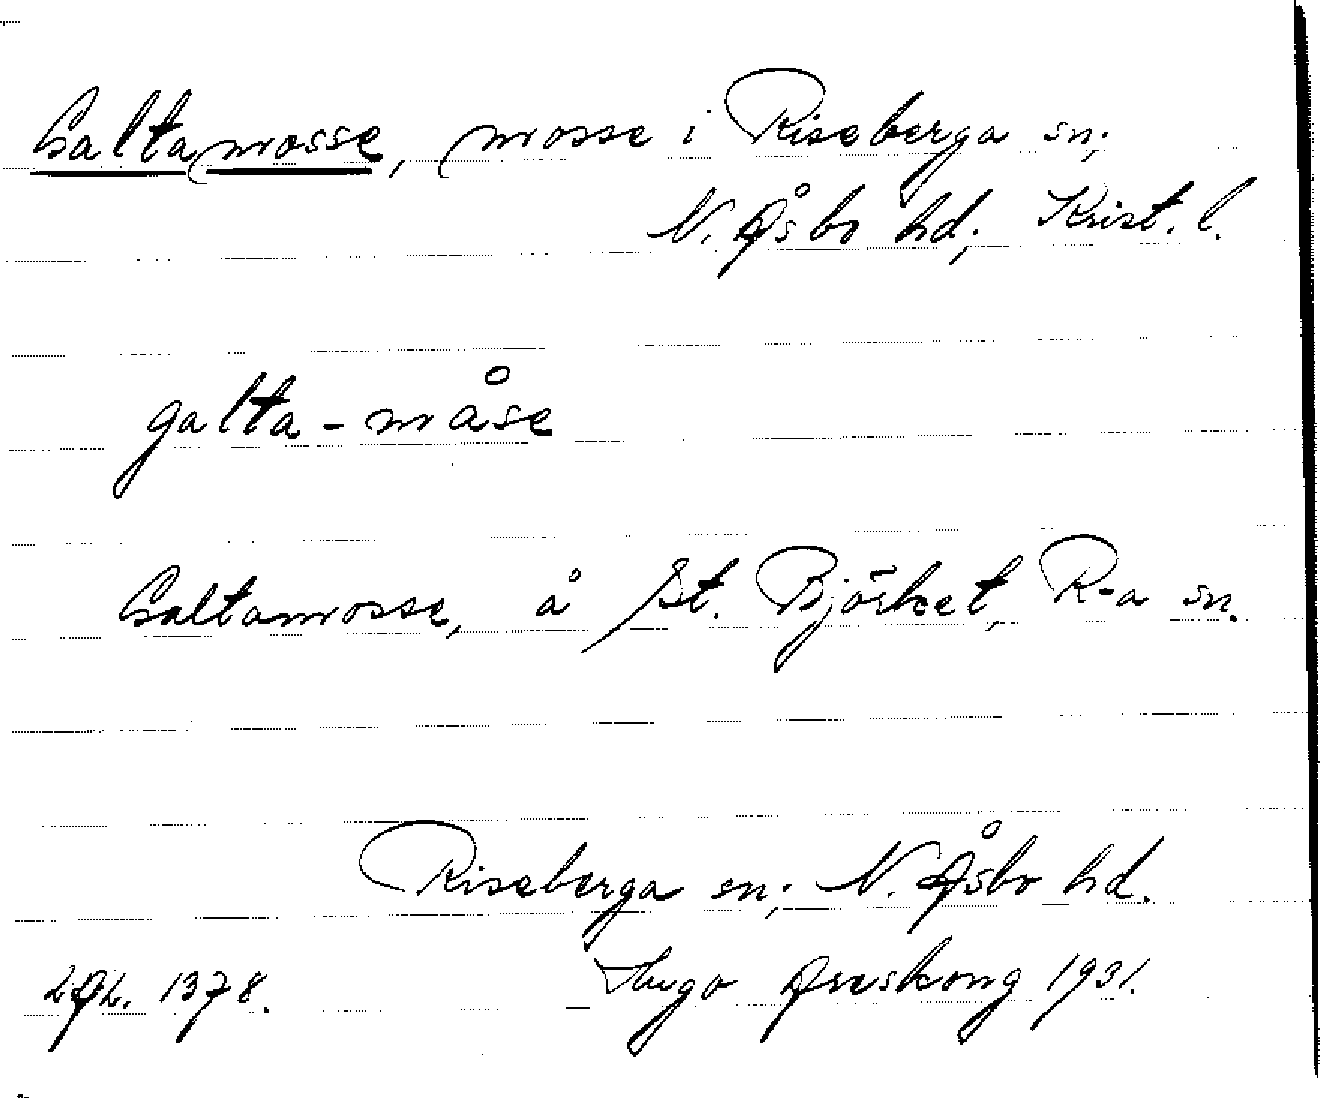 Galtamosse, mosse i Riseberga sn;
N. Åsbo hd; Krist. l.
galta-måse
Galtamosse, å St. Björket, R-a sn.
Riseberga sn; N. Åsbo hd.
LAL. 1378. Hugo Areskoug 1931.